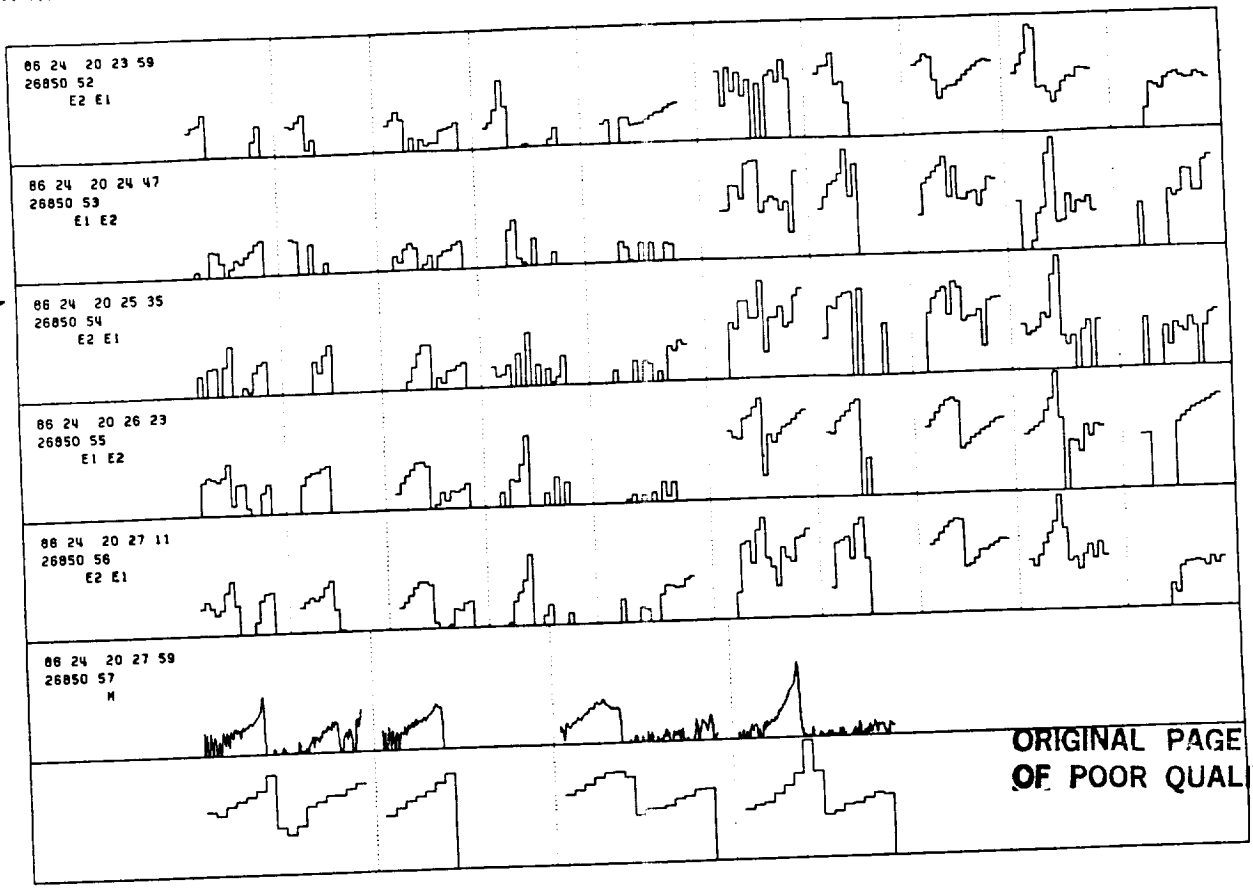 86 24 20 23 59
26850 52
E2 E1
86 24 20 24 47
26850 53
E1 E2
86 24 20 25 35
26850 54
E2 E1
86 24 20 26 23
26850 55
E1 E2
86 24 20 27 11
26850 56
E2 E1
86 24 20 27 59
26850 57
M
ORIGINAL PAGE
OF POOR QUALI